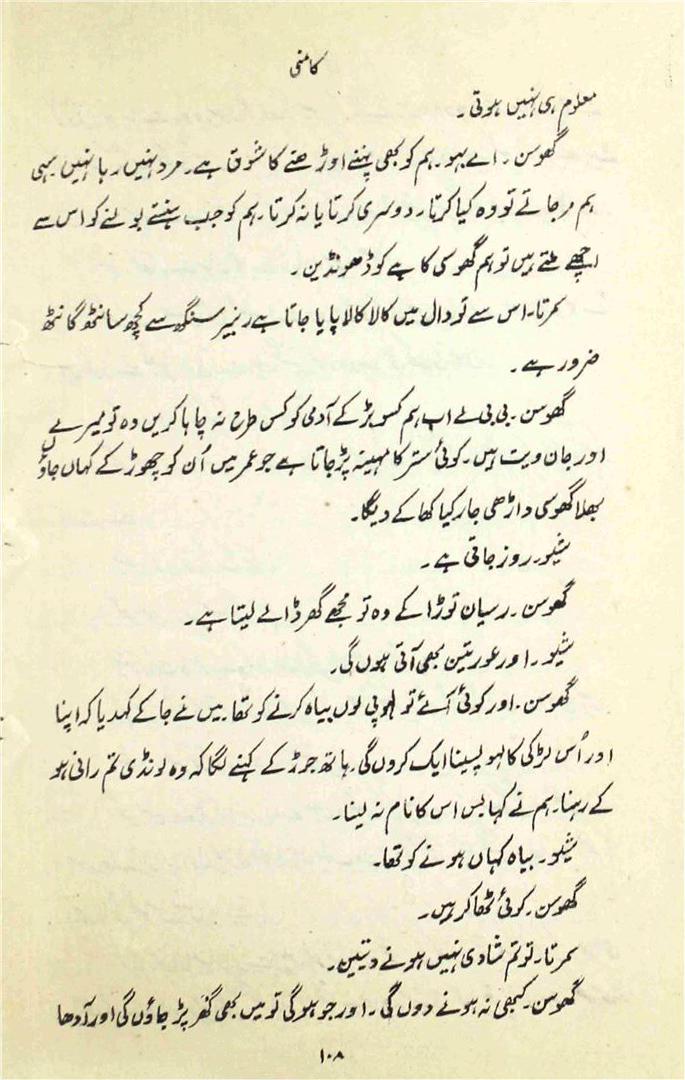 کامنی
معلوم ہی نہیں ہوتی ۔
گھوسن ۔ اے بہو ۔ ہم کو بھی پہننے اوڑھنے کا شوق ہے ۔ مرد نہیں رہا نہیں سہی
ہم مر جاتے تو وہ کیا کرتا ۔ دوسری کرتا یا نہ کرتا ۔ ہم کو جب ہنسنے بولنے کو اس سے
اچھے ملتے ہیں تو ہم گھوسی کاہے کو ڈھونڈین ۔
سمرتا ۔ اس سے تو دال میں کالا کالا پایا جاتا ہے رنبیر سنگھ سے کچھ سانٹھ گانٹھ
ضرور ہے ۔
گھوسن ۔ بی بی لے اب ہم کسو بڑ کے آدمی کو کس طرح نہ چاہا کریں وہ تو میرے
اور جان ویت ہیں ۔ کوئی ستر کا مہینہ پڑ جاتا ہے جو عمر میں اُن کو چھوڑ کے کہاں جاؤں
بھلا گھوسی داڑھی جار کیا کھا کے دیگا ۔
شیو ۔ روز جاتی ہے ۔
گھوسن ۔ رسیان توڑا کے وہ تو مجھے گھر ڈالے لیتا ہے ۔
شیو ۔ اور عورتین بھی آتی ہوں گی ۔
گھوسن ۔ اور کوئی آئے تو لہو پی لوں بیاہ کرنے کو تھا ۔ میں نے جا کے کہدیا کہ اپنا
اور اُس لڑکی کا لہو پسینا ایک کروں گی ۔ ہاتھ جوڑ کے کہنے لگا کہ وہ لونڈی تم رانی ہو
کے رہنا ۔ ہم نے کہا بس اس کا نام نہ لینا ۔
شیو ۔ بیاہ کہاں ہونے کو تھا ۔
گھوسن ۔ کوئی ٹھاکر ہیں ۔
سمرتا ۔ تو تم شادی نہیں ہونے دیتین ۔
گھوسن ۔ کبھی نہ ہونے دوں گی ۔ اور جو ہو گی تو میں بھی گھر پڑ جاؤں گی اور آدھا
۱۰۸